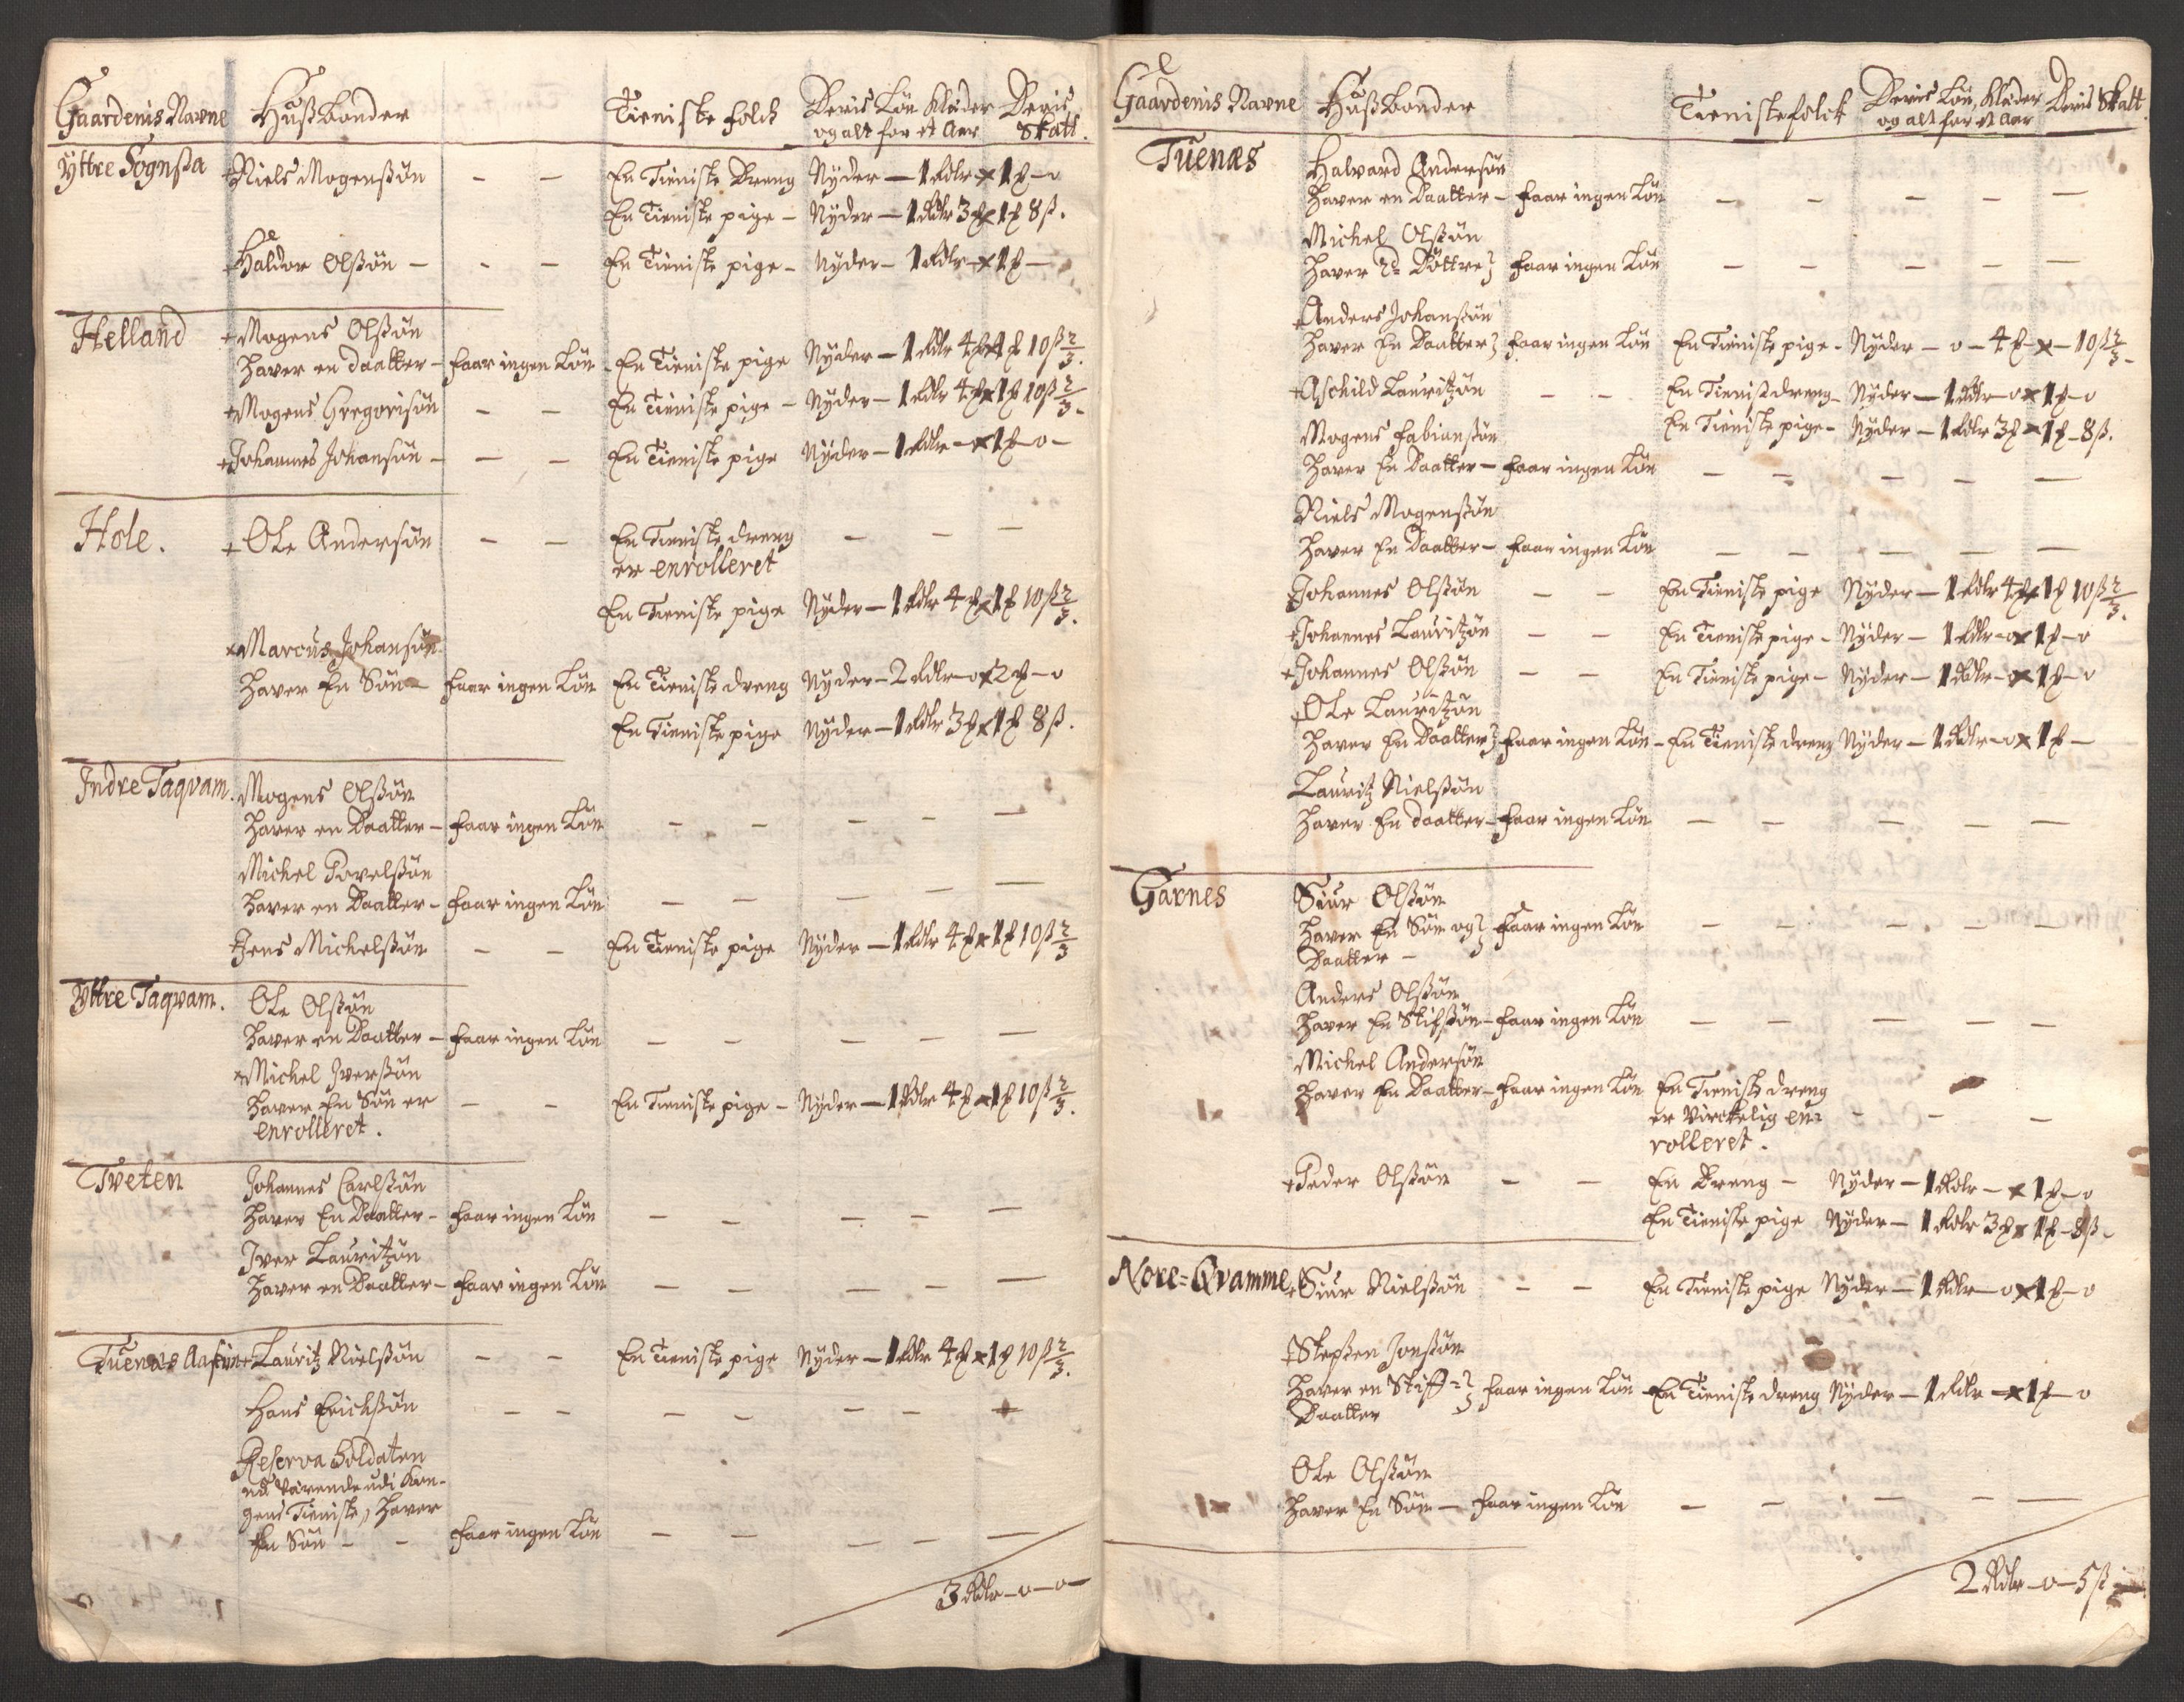 Gaardenis Navne Hußbonder Tieniste folch Deris Løn Klæder og alt for et Aar Deris Skatt.
Yttre Sognsta Niels Mogenßøn - - En Tieniste Dreng Nyder - 1 Rdlr x 1 ℔ - o
En Tieniste pige - Nyder - 1 Rdlr 3 ℔ x 1 ℔ 8 ß.
Haldor Olßøn - - - En Tieniste pige - Nyder - 1 Rdlr - x 1 ℔ -
Helland Mogens Olßøn
haver en daatter - faar ingen Løn - En Tieniste pige Nyder - 1 Rdlr 4 ℔ x 1 ℔ 10 ß 2/3.
Mogens Gregorisøn - - En Tieniste pige - Nyder - 1 Rdlr 4 ℔ x 1 ℔ 10 ß 2/3.
Johannes Johansøn - - - En Tieniste pige Nyder - 1 Rdlr - x 1 ℔ - o -
Hole. Ole Andersøn - - En Tieniste dreng - - -
er enrolleret
En Tieniste pige Nyder - 1 Rdlr 4 ℔ x 1 ℔ 10 ß 2/3.
Marcus Johansøn
haver En Søn - faar ingen Løn En Tieniste dreng Nyder - 2 Rdlr - o x 2 ℔ - o
En Tieniste pige Nyder - 1 Rdlr 3 ℔ x 1 ℔ 8 ß.
Indre Taqvam. Mogens Olßøn
haver en Daatter - faar ingen Løn - - - - -
Michel Povelßøn
haver en Daatter - faar ingen Løn - - - - -
Jens Michelßøn - - En Tieniste pige Nyder - 1 Rdlr 4 ℔ x 1 ℔ 10 ß 2/3
Yttre Taqvam. Ole Olßøn
haver en Daatter - faar ingen Løn - - - - -
Michel Iverßøn
haver En Søn er - - En Tieniste pige - Nyder - 1 Rdlr 4 ℔ x 1 ℔ 10 ß 2/3.
enrolleret.
Tveten Johannes Carlßøn
haver En Daatter - faar ingen Løn - - - - -
Iver Lauritzøn
haver en Daatter - faar ingen Løn - - - - -
Tuenas Lauritz Nielßøn - - En Tieniste pige Nyder - 1 Rdlr 4 ℔ x 1 ℔ 10 ß 2/3.
Hans Erichßøn - - - - - - +
Reserva Soldaten
nu værende udi Kon-
gens Tieniste, haver
En Søn - - faar ingen Løn - - - - -
3 Rdlr - o - o -
Gaardenis Navne Hußbonder Tienistefolck Deris Løn, Klæder og alt for et Aar Deris Skatt.
Tuenæs Halvard Andersøn
haver en Daatter - faar ingen Løn - - - - -
Michel Olßøn
haver 2de Døttre faar ingen Løn - - - - -
Anders Johanßøn
haver En Daatter faar ingen Løn En Tieniste pige - Nyder - o - 4 ℔ - x - 10 ß 2/3 -
Aschild Lauritzøn - - En Tienistdreng - Nyder - 1 Rdlr - o x 1 ℔ - o
Mogens Fabianßøn En Tieniste pige - Nyder - 1 Rdlr 3 ℔ x 1 ℔ - 8 ß.
haver En Daatter - faar ingen Løn - - - - -
Niels Mogenßøn
haver En Daatter - faar ingen Løn - - - - -
Johannes Olßøn - - En Tieniste pige Nyder - 1 Rdlr 4 ℔ x 1 ℔ 10 ß 2/3.
Johannes Lauritzøn - - En Tieniste pige - Nyder - 1 Rdlr - o x 1 ℔ - o
Johannes Olßøn - - En Tieniste pige - Nyder - 1 Rdlr - o x 1 ℔ - o
Ole Lauritzøn
haver En Daatter faar ingen Løn - En Tieniste dreng Nyder - 1 Rdlr - o x 1 ℔ -
Lauritz Nielßøn
haver En daatter - faar ingen Løn - - - - -
Garnes Siur Olßøn
haver En Søn og faar ingen Løn - - - - -
Daatter -
Anders Olßøn
haver En Stifsøn - faar ingen Løn - - - - -
Michel Andersøn
haver En Daatter - faar ingen Løn En Tieniste dreng
er virckelig en= - - -
rolleret.
Peder Olßøn - - En Dreng - Nyder - 1 Rdlr - x 1 ℔ - o
En Tieniste pige Nyder - 1 Rdlr 3 ℔ x 1 ℔ - 8 ß -
Nore=Qvamme Siur Nielßøn - - En Tieniste pige Nyder - 1 Rdlr - o x 1 ℔ - o
Stephen Jonßøn
haver en Stiff= faar ingen Løn - En Tieniste dreng Nyder - 1 Rdlr - x 1 ℔ - o
Daatter
Ole Olßøn
haver En Søn - faar ingen Løn - - - - -
2 Rdlr - o - 5 ß